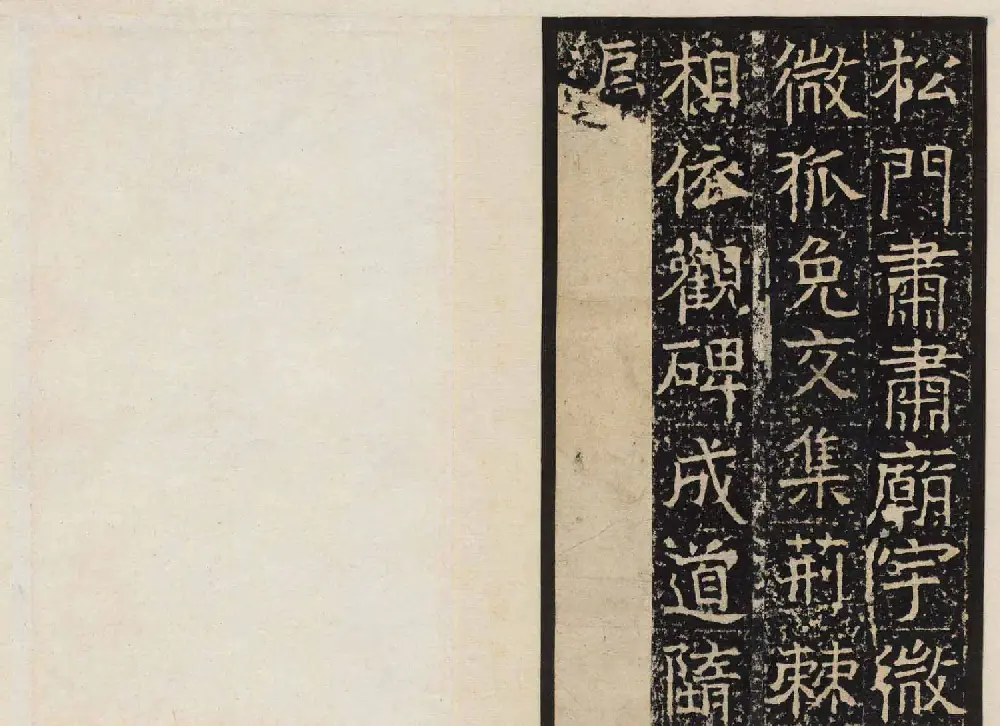 松門肅肅廟宇微
微狐兔交集荊棘
相依觀碑成道